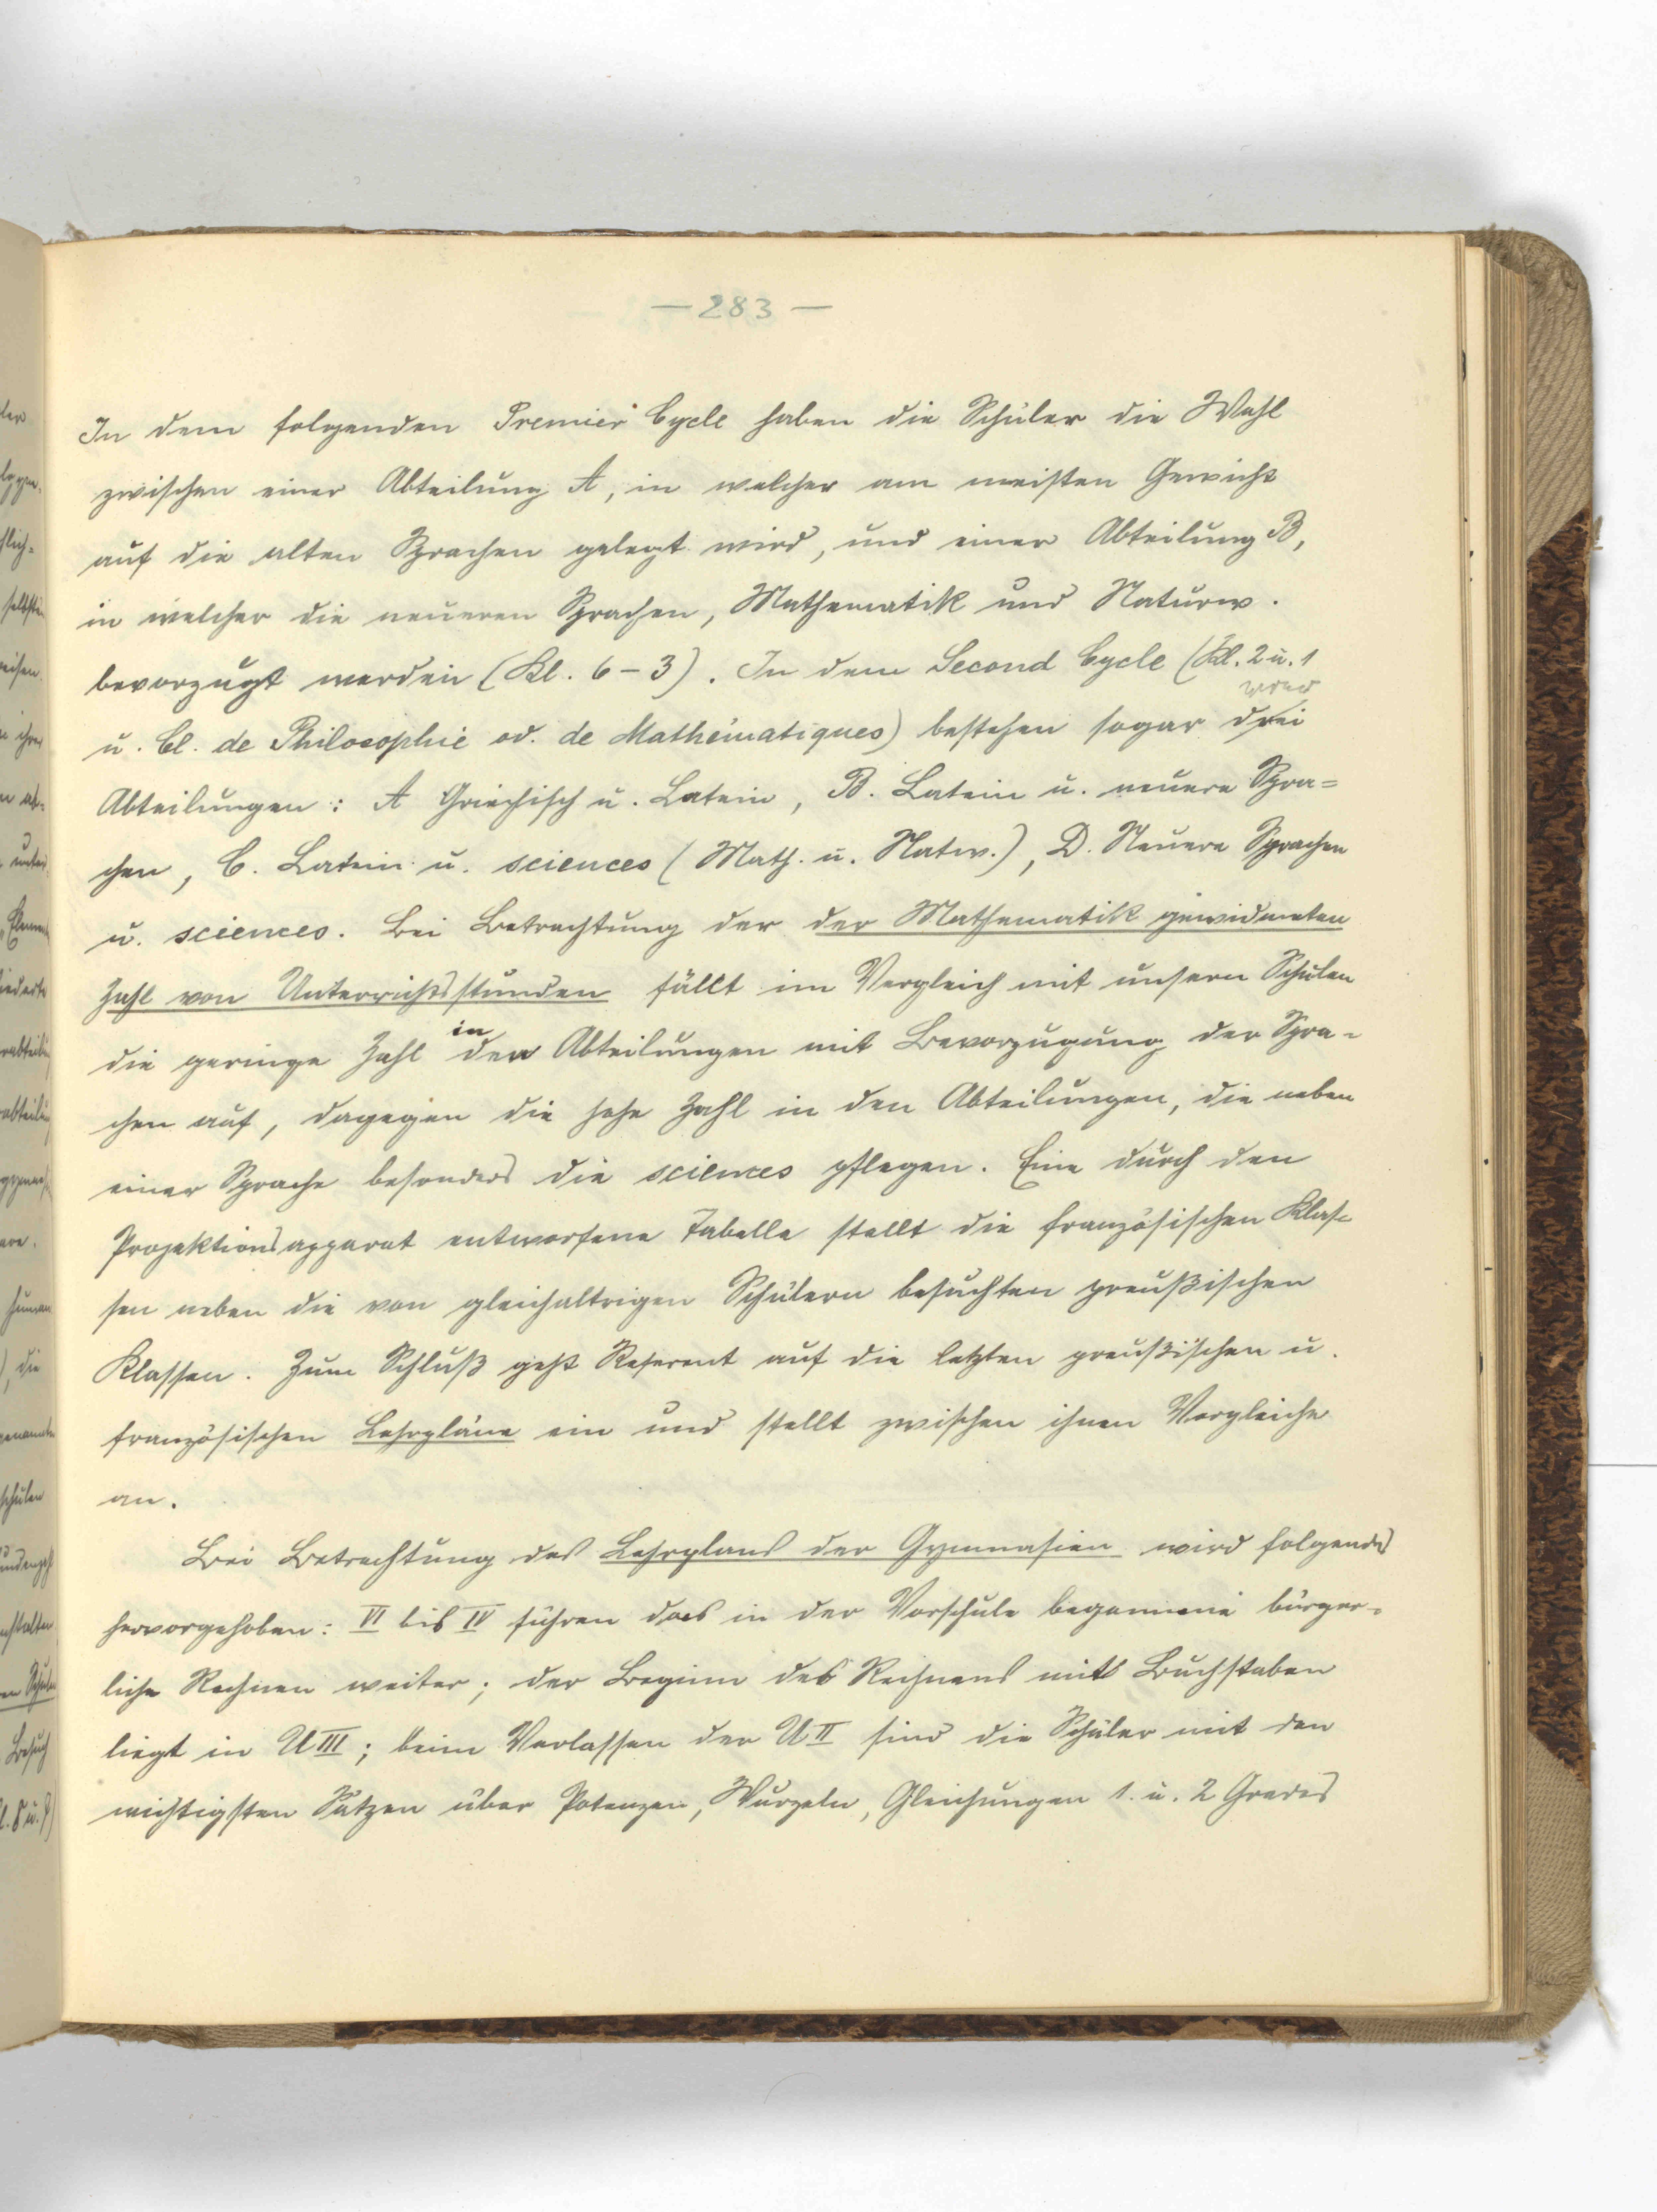 — 283 —
In dem folgenden Premier Cycle haben die Schüler die Wahl
zwischen einer Abteilung A, in welcher am meisten Gewicht
auf die alten Sprachen gelegt wird, und einer Abteilung B,
in welcher die neueren Sprachen, Mathematik und Naturw.
bevorzugt werden (Kl. 6–3). In dem Second Cycle (Kl. 2 u. 1
u. Cl. de Philosophie od. de Mathématiques) bestehen sogar drei
Abteilungen: A Griechisch u. Latein, B. Latein u. neuere Spra=
chen, C. Latein u. sciences (Math. u. Natw.), D. Neuere Sprachen
u. sciences. Bei Betrachtung der der Mathematik gewidmeten
Zahl von Unterrichtsstunden fällt im Vergleich mit unsern Schulen
die geringe Zahl in den Abteilungen mit Bevorzugung der Spra=
chen auf, dagegen die hohe Zahl in den Abteilungen, die neben
einer Sprache besonders die sciences pflegen. Eine durch den
Projektionsapparat entworfene Tabelle stellt die französischen Klas=
sen neben die von gleichaltrigen Schülern besuchten preußischen
Klassen. Zum Schluß geht Referent auf die letzten preußischen u.
französischen Lehrpläne ein und stellt zwischen ihnen Vergleiche
an.
Bei Betrachtung des Lehrplans der Gymnasien wird folgendes
hervorgehoben: VI bis IV führen das in der Vorschule begonnene bürger=
liche Rechnen weiter; der Beginn des Rechnens mit Buchstaben
liegt in U III; beim Verlassen der U II sind die Schüler mit den
wichtigsten Sätzen über Potenzen, Wurzeln, Gleichungen 1. u. 2 Grades